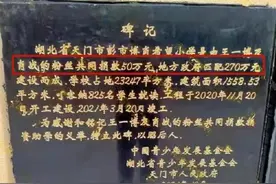 碑记
湖北省天门市彭市博肖希望小学是由王一博及
肖战的粉丝共同捐款50万元,地方政府匹配270万元
建设而成,学校占地23247平方米,建筑面积1558.53
平方米,可容纳825名学生就读。工程于2020年11月
开工建设,2021年3月20月竣工。
为感谢和铭记王一博肖战的粉丝共同捐款
资助学的义举,特立此碑,以昭后人。
中国青少年发展基金会
湖北省青少年发展基金会
天门市人民政府